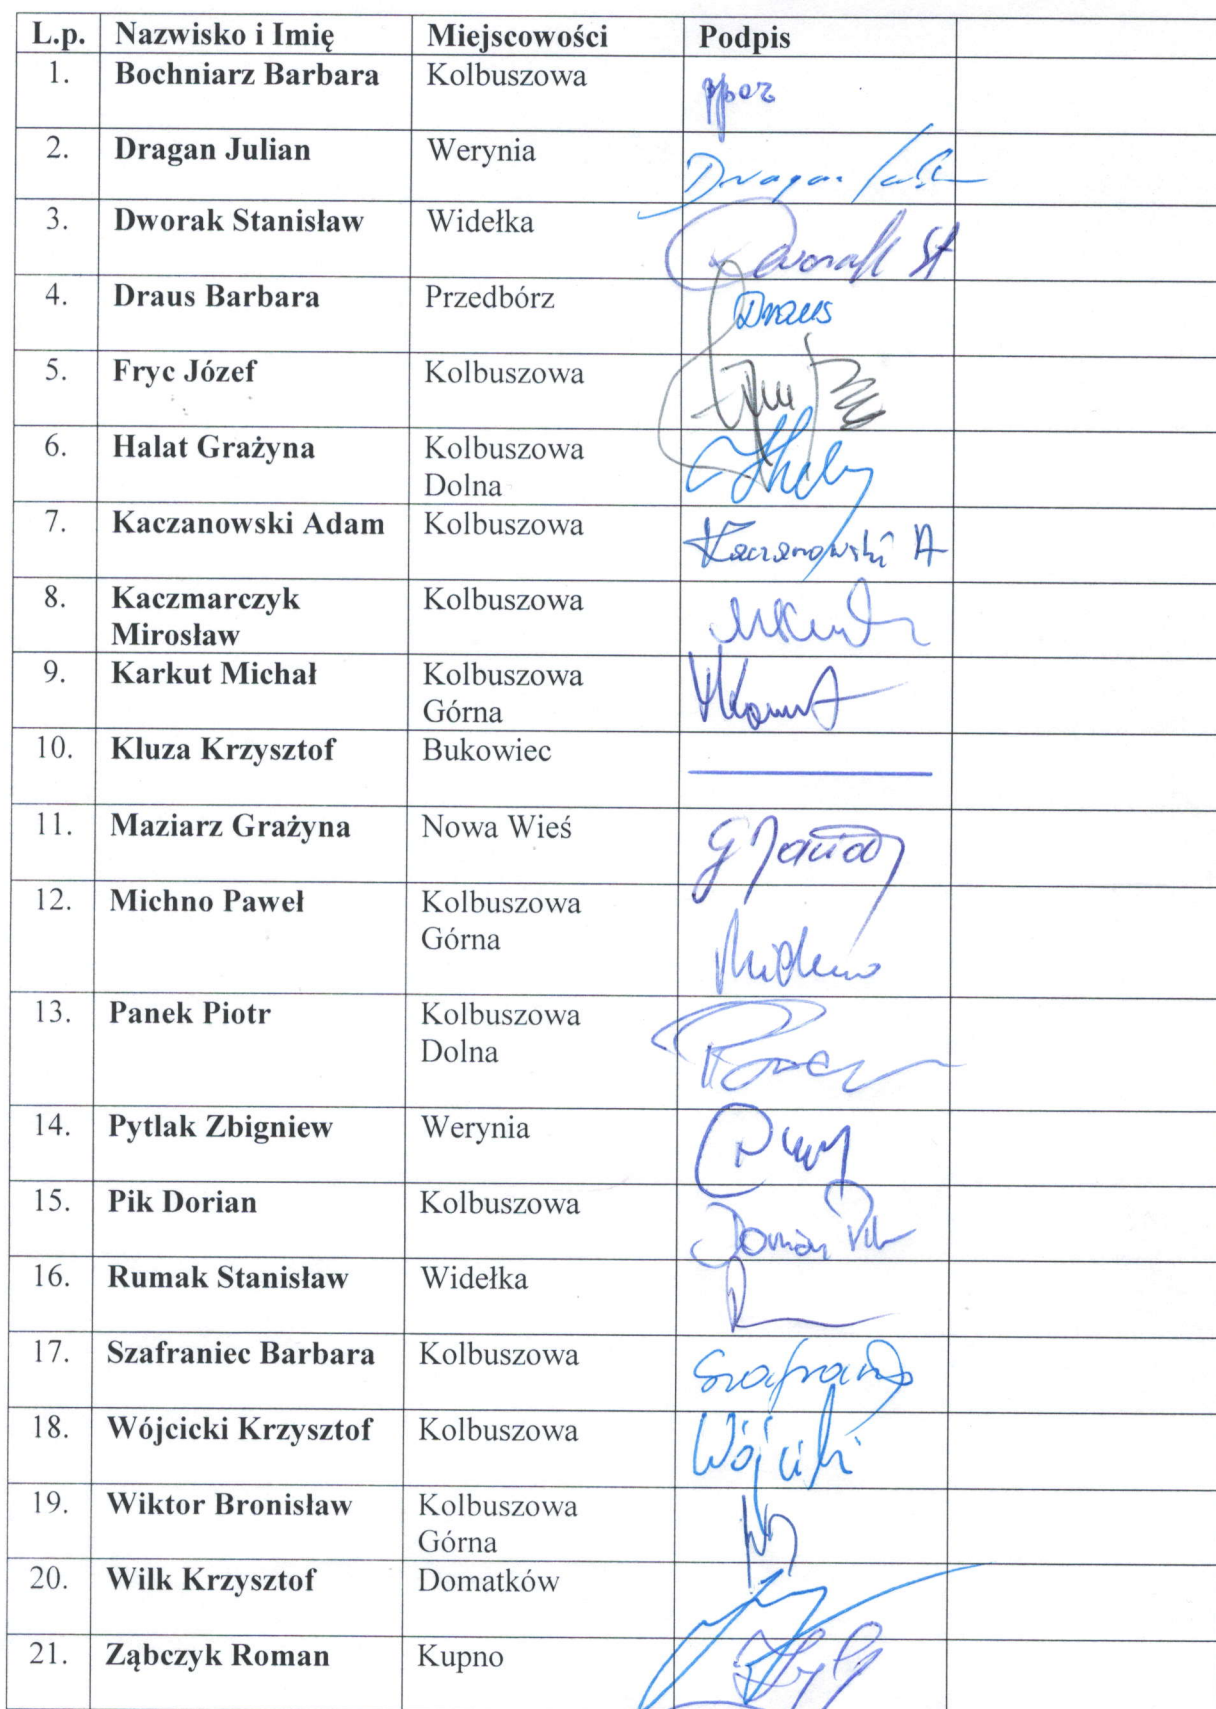 L.p. Nazwisko i Imię Miejscowości Podpis
1. Bochniarz Barbara Kolbuszowa
2. Dragan Julian Werynia Dragan
3. Dworak Stanisław Widełka Dworak St
4. Draus Barbara Przedbórz Draus
5. Fryc Józef Kolbuszowa
6. Halat Grażyna Kolbuszowa
Dolna
7. Kaczanowski Adam Kolbuszowa Kaczanowski A
8. Kaczmarczyk Kolbuszowa
Mirosław
9. Karkut Michał Kolbuszowa
Górna
10. Kluza Krzysztof Bukowiec
11. Maziarz Grażyna Nowa Wieś
12. Michno Paweł Kolbuszowa
Górna Michno
13. Panek Piotr Kolbuszowa
Dolna
14. Pytlak Zbigniew Werynia
15. Pik Dorian Kolbuszowa Dorian Pik
16. Rumak Stanisław Widełka
17. Szafraniec Barbara Kolbuszowa
18. Wójcicki Krzysztof Kolbuszowa Wójcicki
19. Wiktor Bronisław Kolbuszowa
Górna
20. Wilk Krzysztof Domatków
21. Ząbczyk Roman Kupno